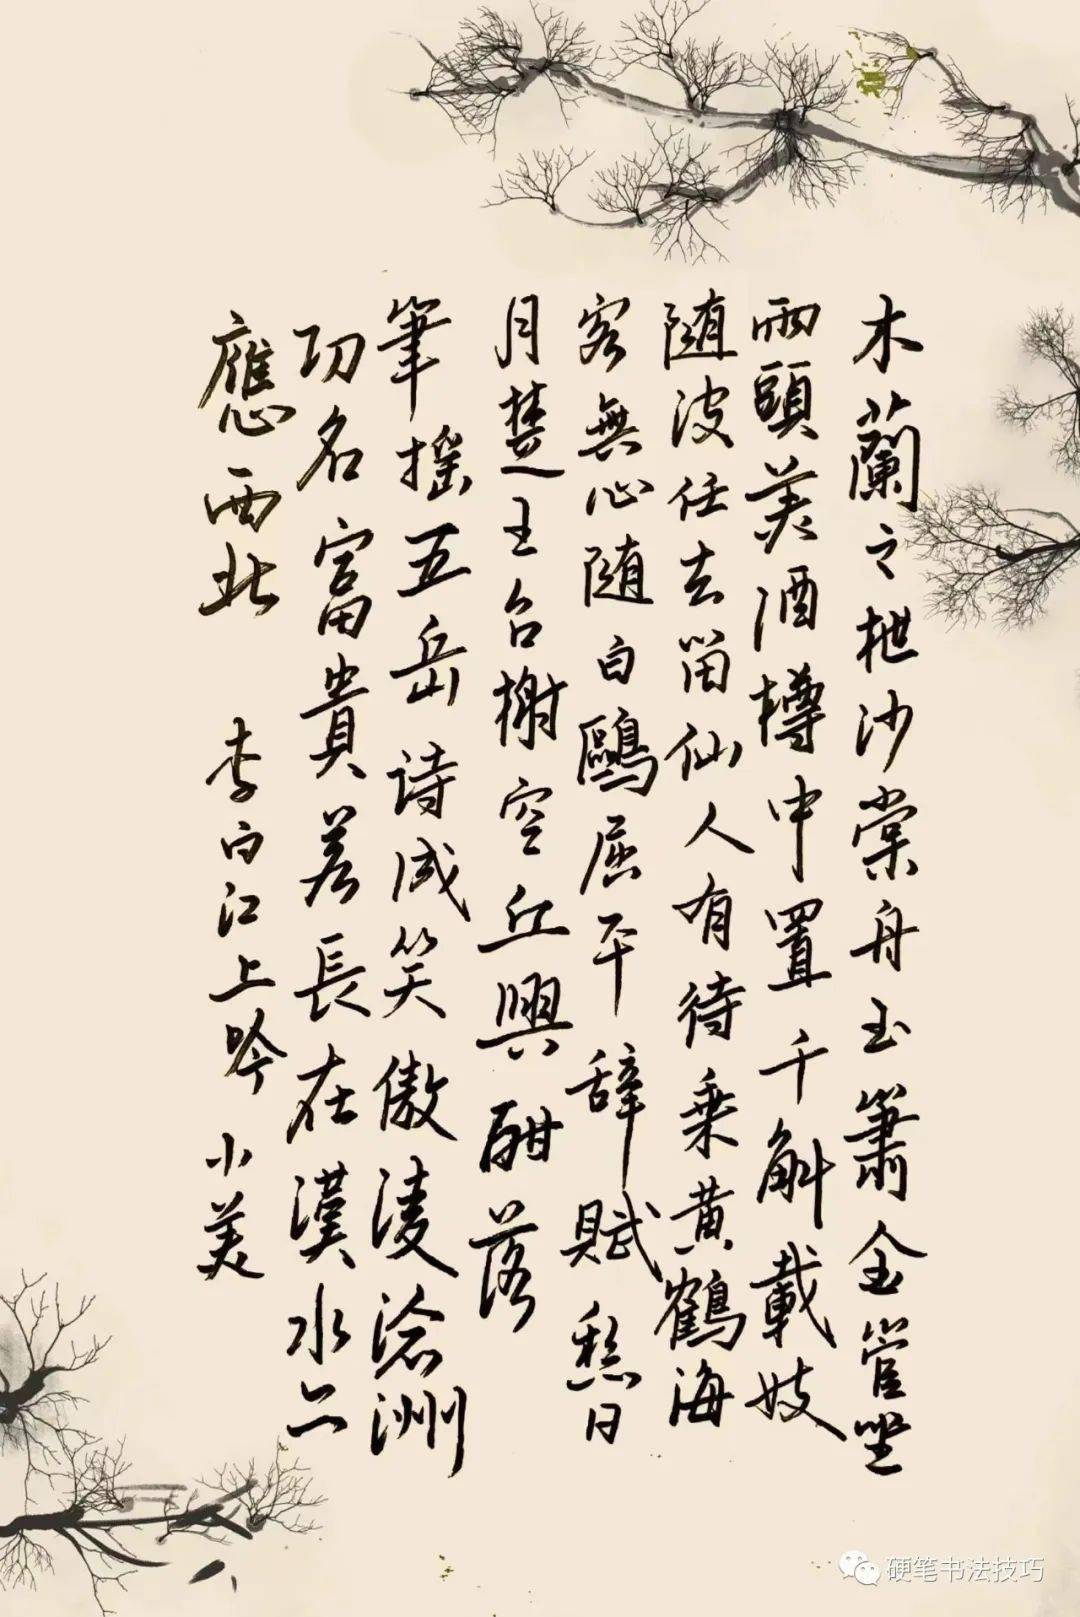 木蘭之枻沙棠舟玉簫金管坐
兩頭美酒樽中置千斛載妓
随波任去留仙人有待乘黄鶴海
客無心随白鷗屈平辞賦懸日
月楚王台榭空丘興酣落
筆摇五岳诗成笑傲凌滄洲
功名富貴若長在漢水亦
應西北 李白江上吟 小美
硬笔书法技巧